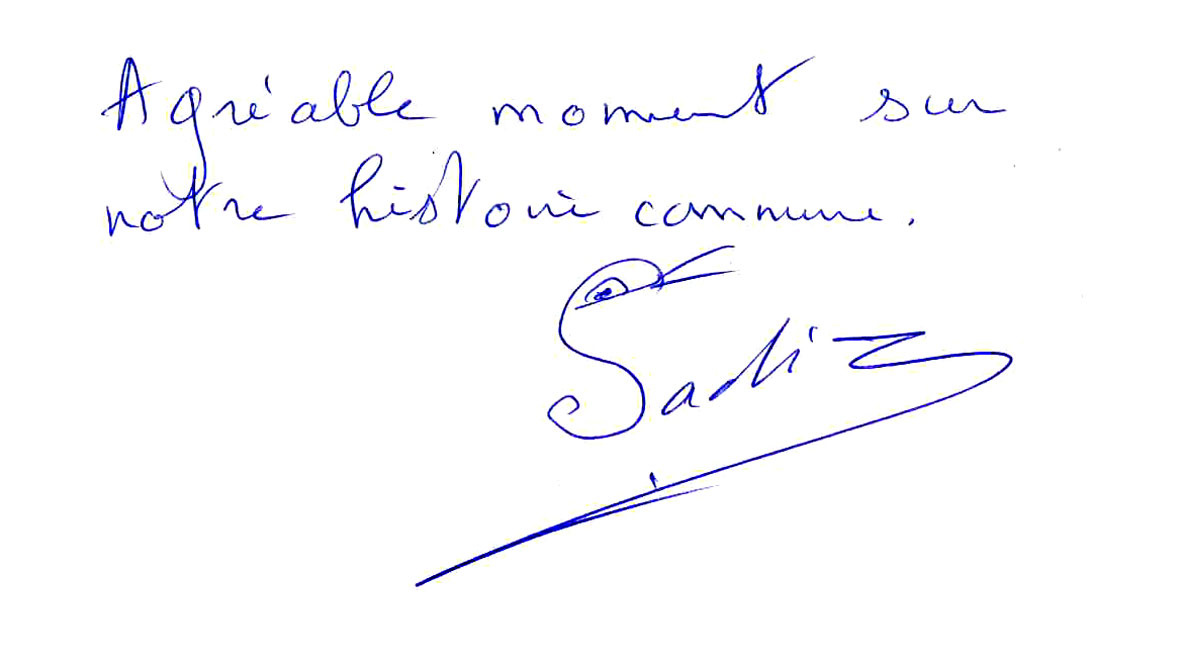 Agréable moment sur
notre histoire commune.
Sadi